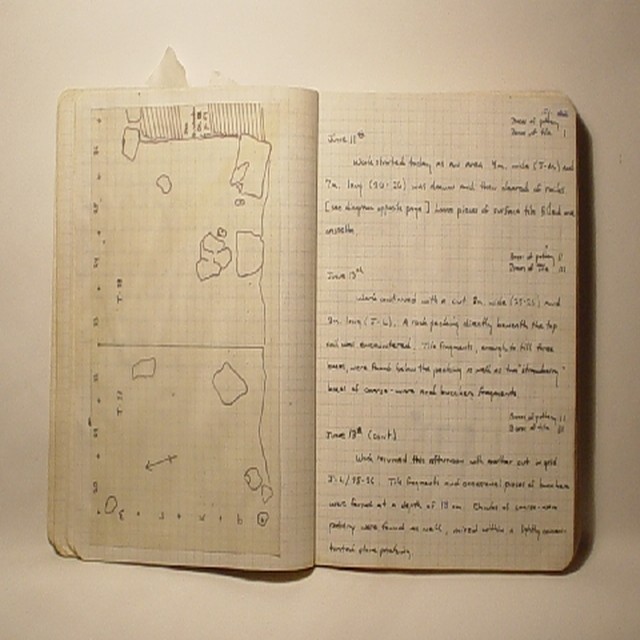 Boxes of pottery
Boxes of tile 1
June 11th
Work started today as an area 4m. wide (J-M) and
7m. long (20-26) was drawn and then cleared of rocks
[see diagram opposite page] Loose pieces of surface tile filled one
Boxes of pottery II
Boxes of tile III
June 13th
Work continued with a cut 2m. wide (25-26) and
3m. long (J-L). A rock packing directly beneath the top
soil was encountered. Tile fragments, enough to fill three
boxes, were found below the packing as well as two "strawberry"
boxes of coarse-ware and bucchero fragments.
Boxes of pottery II
Boxes of tile III
June 13th (cont)
Work resumed this afternoon with another cut in grid
J-L/25-26. Tile fragments and occasional pieces of bucchero
were found at a depth of 18 cm. Chunks of coarse-ware
pottery were found as well, mixed within a lightly concen-
trated stone packing.